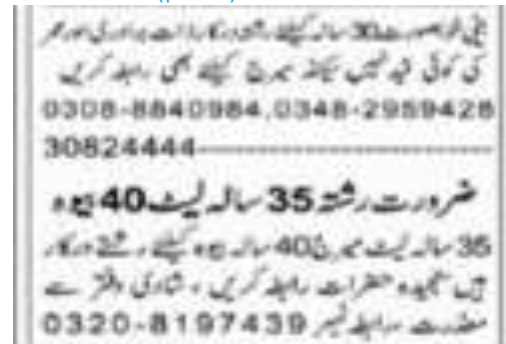 بیٹی خوبصورت 30 سالہ کیلئے رشتہ درکار ذات برادری اور عمر
کی کوئی قید نہیں سیکنڈ میرج کیلئے بھی رابطہ کریں
0308-8840984,0348-2959428
30824444
ضرورت رشتہ 35 سالہ لیٹ 40 بیوہ
35 سالہ لیٹ میرج 40 سالہ بیوہ کیلئے رشتے درکار
ہیں سنجیدہ حضرات رابطہ کریں ، شادی دفتر سے
معذرت رابطہ نمبر 0320-8197439